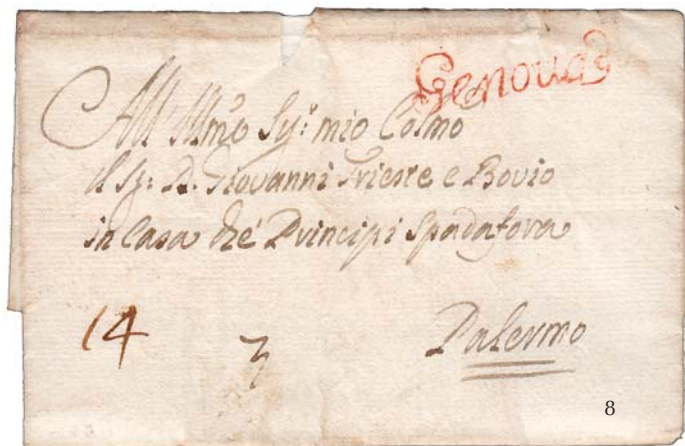 Genova
All' Illmo Sig.r mio Colmo
il Sig: D. Giovanni Trieste e Bovio
in Casa dré Principi Spadafora
14
Palermo
8